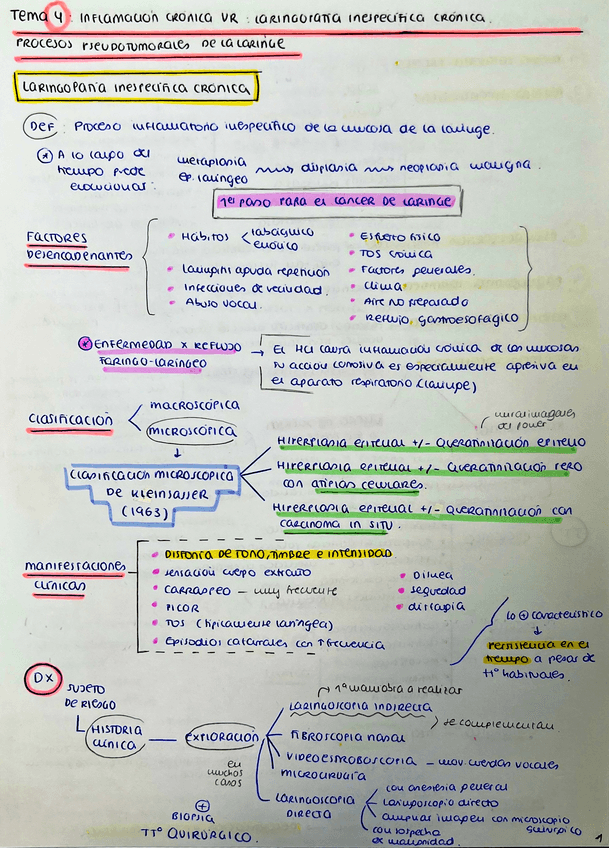 Tema 4: INFLAMACIÓN CRÓNICA VR: LARINGOPATÍA INESPECÍFICA CRÓNICA.
PROCESOS PSEUDOTUMORALES DE LA LARINGE
LARINGOPATÍA INESPECÍFICA CRÓNICA
DEF: Proceso inflamatorio inespecífico de la mucosa de la laringe.
* A lo largo del tiempo puede evolucionar:
metaplasia ep. laríngeo → displasia → neoplasia maligna.
1er PASO PARA EL CÁNCER DE LARINGE
FACTORES DESENCADENANTES
• Hábitos < tabáquico
enólico
• Laringitis aguda repetición
• Infecciones de vecindad.
• Abuso vocal.
• Esfuerzo físico
• TOS crónica
• Factores generales.
• Clima
• Aire no preparado
• Reflujo gastroesofágico
* ENFERMEDAD X REFLUJO FARINGO-LARÍNGEO →
El HCl causa inflamación crónica de las mucosas
su acción corrosiva es especialmente agresiva en
en el aparato respiratorio (laringe)
CLASIFICACIÓN
macroscópica
microscópica
↓
Clasificación microscópica
DE KLEINSASSER
(1963)
mirar imágenes del power
HIPERPLASIA EPITELIAL +/- QUERATINIZACIÓN EPITELIO
HIPERPLASIA EPITELIAL +/- QUERATINIZACIÓN PERO
CON ATIPIAS CELULARES.
HIPERPLASIA EPITELIAL +/- QUERATINIZACIÓN CON
CARCINOMA IN SITU.
MANIFESTACIONES CLÍNICAS
• DISFONÍA DE TONO, TIMBRE E INTENSIDAD
• sensación cuerpo extraño
• CARRASPEO – muy frecuente
• PICOR
• TOS (típicamente laríngea)
• Episodios catarrales con ↑ frecuencia
• Disnea
• sequedad
• disfagia
Lo ⊕ característico
↓
persistencia en el
tiempo a pesar de
ttº habituales.
DX
SUJETO
DE RIESGO
HISTORIA
CLÍNICA
EXPLORACIÓN
1ª maniobra a realizar
LARINGOSCOPIA INDIRECTA
FIBROSCOPIA NASAL
se complementan
VIDEOESTROBOSCOPIA – mov. cuerdas vocales
MICROCIRUGÍA
LARINGOSCOPIA
DIRECTA
con anestesia general
laringoscopio directo
ampliar imagen con microscopio
quirúrgico
con sospecha
de malignidad.
en
muchos
casos
⊕
BIOPSIA
TTº QUIRÚRGICO.
1